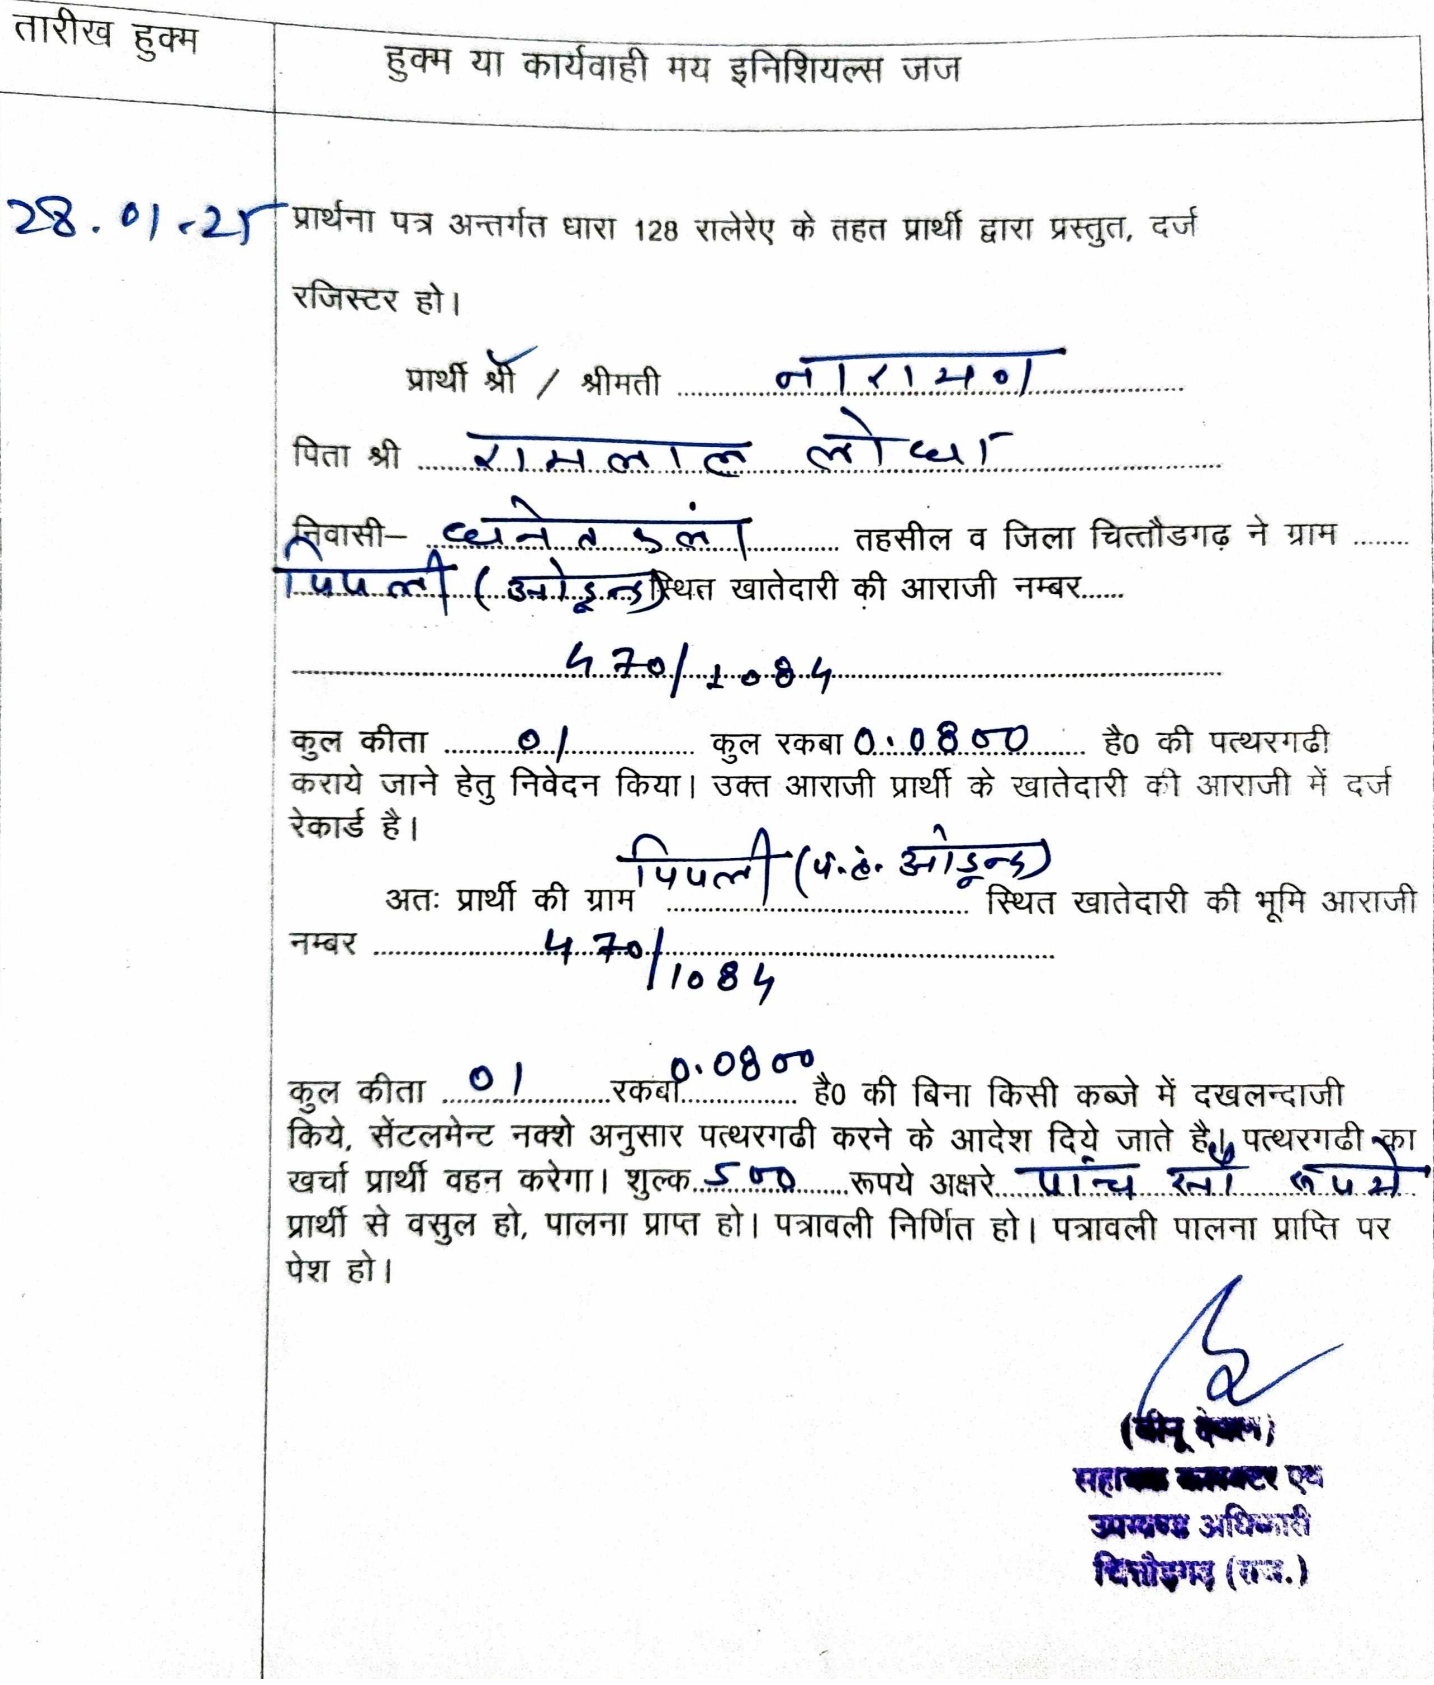 तारीख हुक्म
हुक्म या कार्यवाही मय इनिशियल्स जज
28.01-25
प्रार्थना पत्र अन्तर्गत धारा 128 रालेरेए के तहत प्रार्थी द्वारा प्रस्तुत, दर्ज
रजिस्टर हो।
प्रार्थी श्री / श्रीमती नारायण
पिता श्री रामलाल लोधा
निवासी- तहसील व जिला चित्तौडगढ़ ने ग्राम
पिपली (ओडून्द) स्थित खातेदारी की आराजी नम्बर
470/1084
कुल कीता 01 कुल रकबा 0.0800 है0 की पत्थरगढी
कराये जाने हेतु निवेदन किया। उक्त आराजी प्रार्थी के खातेदारी की आराजी में दर्ज
रेकार्ड है।
पिपली (प.ह. ओडून्द)
अतः प्रार्थी की ग्राम स्थित खातेदारी की भूमि आराजी
नम्बर 470/1084
कुल कीता 01 रकबा 0.0800 है0 की बिना किसी कब्जे में दखलन्दाजी
किये, सेंटलमेन्ट नक्शे अनुसार पत्थरगढी करने के आदेश दिये जाते है। पत्थरगढी का
खर्चा प्रार्थी वहन करेगा। शुल्क 500 रूपये अक्षरे पांच सौ रूपये
प्रार्थी से वसुल हो, पालना प्राप्त हो। पत्रावली निर्णित हो। पत्रावली पालना प्राप्ति पर
पेश हो।
(बीनू देवल)
सहायक कलक्टर एवं
उपखण्ड अधिकारी
चित्तौड़गढ़ (राज.)